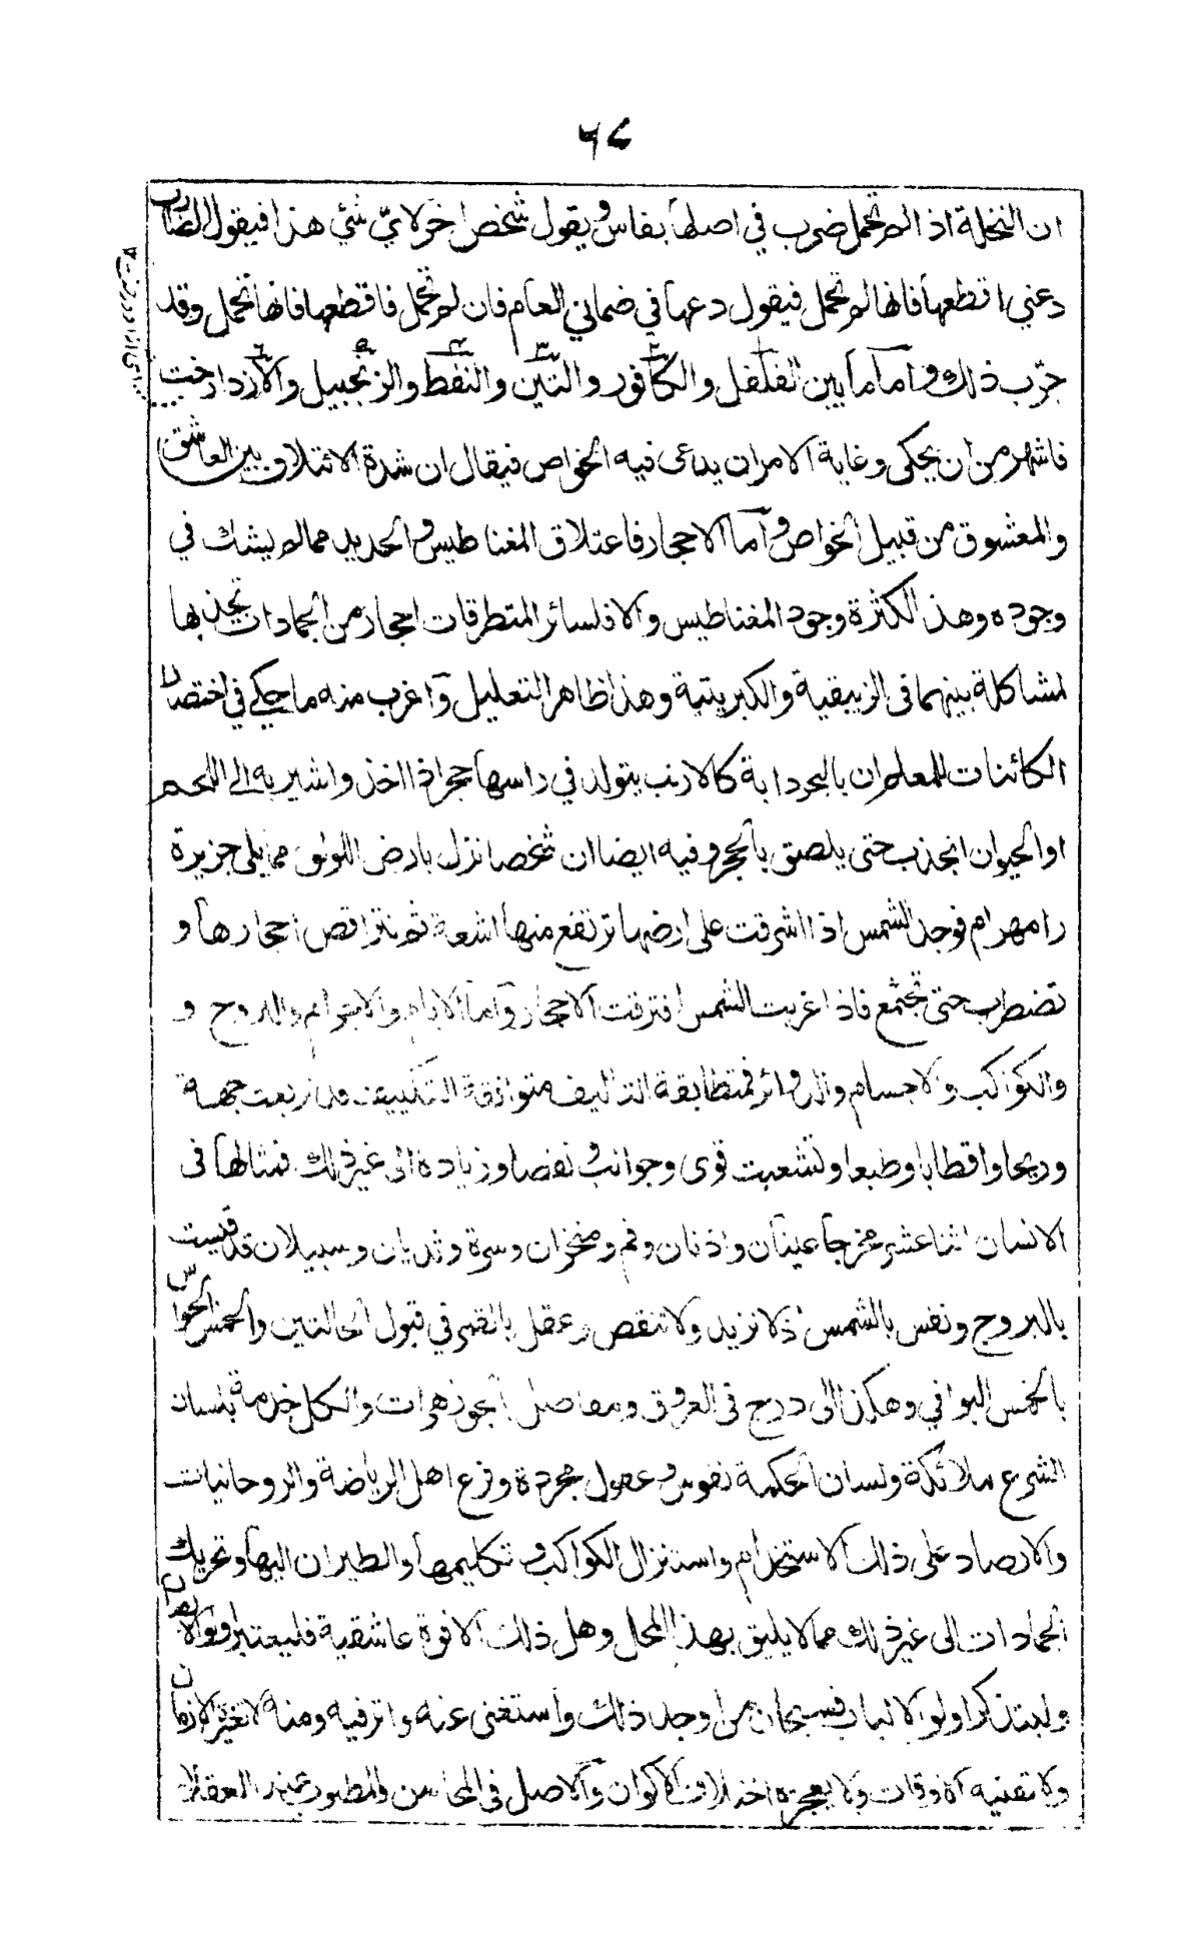 ٦٨
ان النخلة اذ الم تحمل ضرب في اصلها بفاس و يقول شخص اخر لايّ شئ هذا فيقول الضارب
دعني اقطعها فانها لم تحمل فيقول دعها في ضماني العام فان لم تحمل فاقطعها فانها تحمل وقد
جرّب ذلك و اما ما بين الفلفل والكافور والتين والنفط والزنجبيل والازدادرخت
فاشهر من ان يحكى وغاية الامر ان يدعى فيه الخواص فيقال ان شدة الائتلاف بين العاشق
والمعشوق من قبيل الخواص و اما الاحجار فاعتلاق المغناطيس و الحديد مما لم يشك في
وجوده وهذا لكثرة وجود المغناطيس والا فلسائر المتطرقات احجار من الجمادات تجذبها
لمشاكلة بينهما فى الزيبقية والكبريتية وهذا ظاهر التعليل و اغرب منه ما حكي في اختصار
الكائنات للمعلم ان بالبحر دابة كالارنب يتولد في راسها حجر اذا اخذ واشير به الى اللحم
او الحيوان انجذب حتى يلصق بالحجر و فيه ايضا ان شخصا نزل بارض اللؤلؤ مما يلى جزيرة
رامهرام فوجد الشمس اذا اشرقت على ارضها ترتفع منها اشعة ثم تتراقص احجارها و
تضطرب حتى تجتمع فاذا غربت الشمس افترقت الاحجار و اما الايام والاجرام والبروج و
والكواكب والاجسام والدوائر فمتطابقة التاليف متوافقة التكييف قد اربعت جهة
وريحا واقطابا وطبعا وتشعبت قوى وجوانب و نقصا وزيادة الى غير ذلك فمثالها فى
الانسان اثنا عشر مخرجا عينان واذنان وفم ومنخران وسرة وثديان وسبيلان قد قيست
بالبروج ونفس بالشمس اذ لا تزيد ولا تنقص و عقل بالقمر في قبول الحالتين والخمس الحواس
بالخمس البواقي وهكذا الى درج فى العروق ومفاصل الجوزهرات والكل خدمة بلسان
الشرع ملائكة ولسان الحكمة نفوس و عقول مجردة وفرع اهل الرياضة والروحانيات
والارصاد على ذلك الاستخدام واستنزال الكواكب و تكليمها والطيران اليها و تحريك
الجمادات الى غير ذلك مما لا يليق بهذا المحل وهل ذلك الا قوة عاشقية فليعتبر اولو الابصار
وليتذكر اولو الالباب فسبحان من اوجد ذلك واستغنى عنه واثر فيه ومنه لا تغيره الازمان
ولا تفنيه الاوقات ولا يعجزه اختلاف الاكوان و الاصل فى المحاسن والمطبور عند العقلا